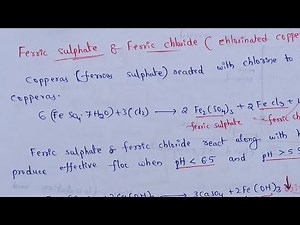 Ferric sulphate & Ferric chloride ( chlorinated copper
Copperas (ferrous sulphate) reacted with chlorine to
copperas.
6 (Fe SO4 7H2O) + 3(Cl2) → 2 Fe2(SO4)3 + 2 Fe cl3 +
ferric sulphate ferric ch
Ferric sulphate & ferric chloride react along with
produce effective floc when pH < 6.5 and pH > 5.5
→ 3CaSO4 + 2Fe (OH)3 ↓